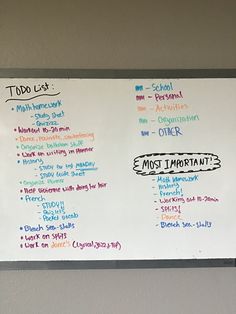 TODO LIST:
• Math homework
- Study Sheet
- Quizizz
• Workout 10-20 min
• Organize bathroom stuff
• Work on writing in planner
• History
- Study for test MONDAY
- Study Guide Sheet
• Organize planner
• Help with doing her hair
• French
- STUDY!!
- Quizlets
- Packet Vocab
• Bleach Sea-Shells
• Work on Splits
• Work on Dance's (Lyrical, Jazz & TAP)
- School
- Personal
- Activities
- Organization
- OTHER
MOST IMPORTANT!
- Math Homework
- History
- French!
- Working out 10-20 min
- Splits!
- Dance
- Bleach Sea-Shells